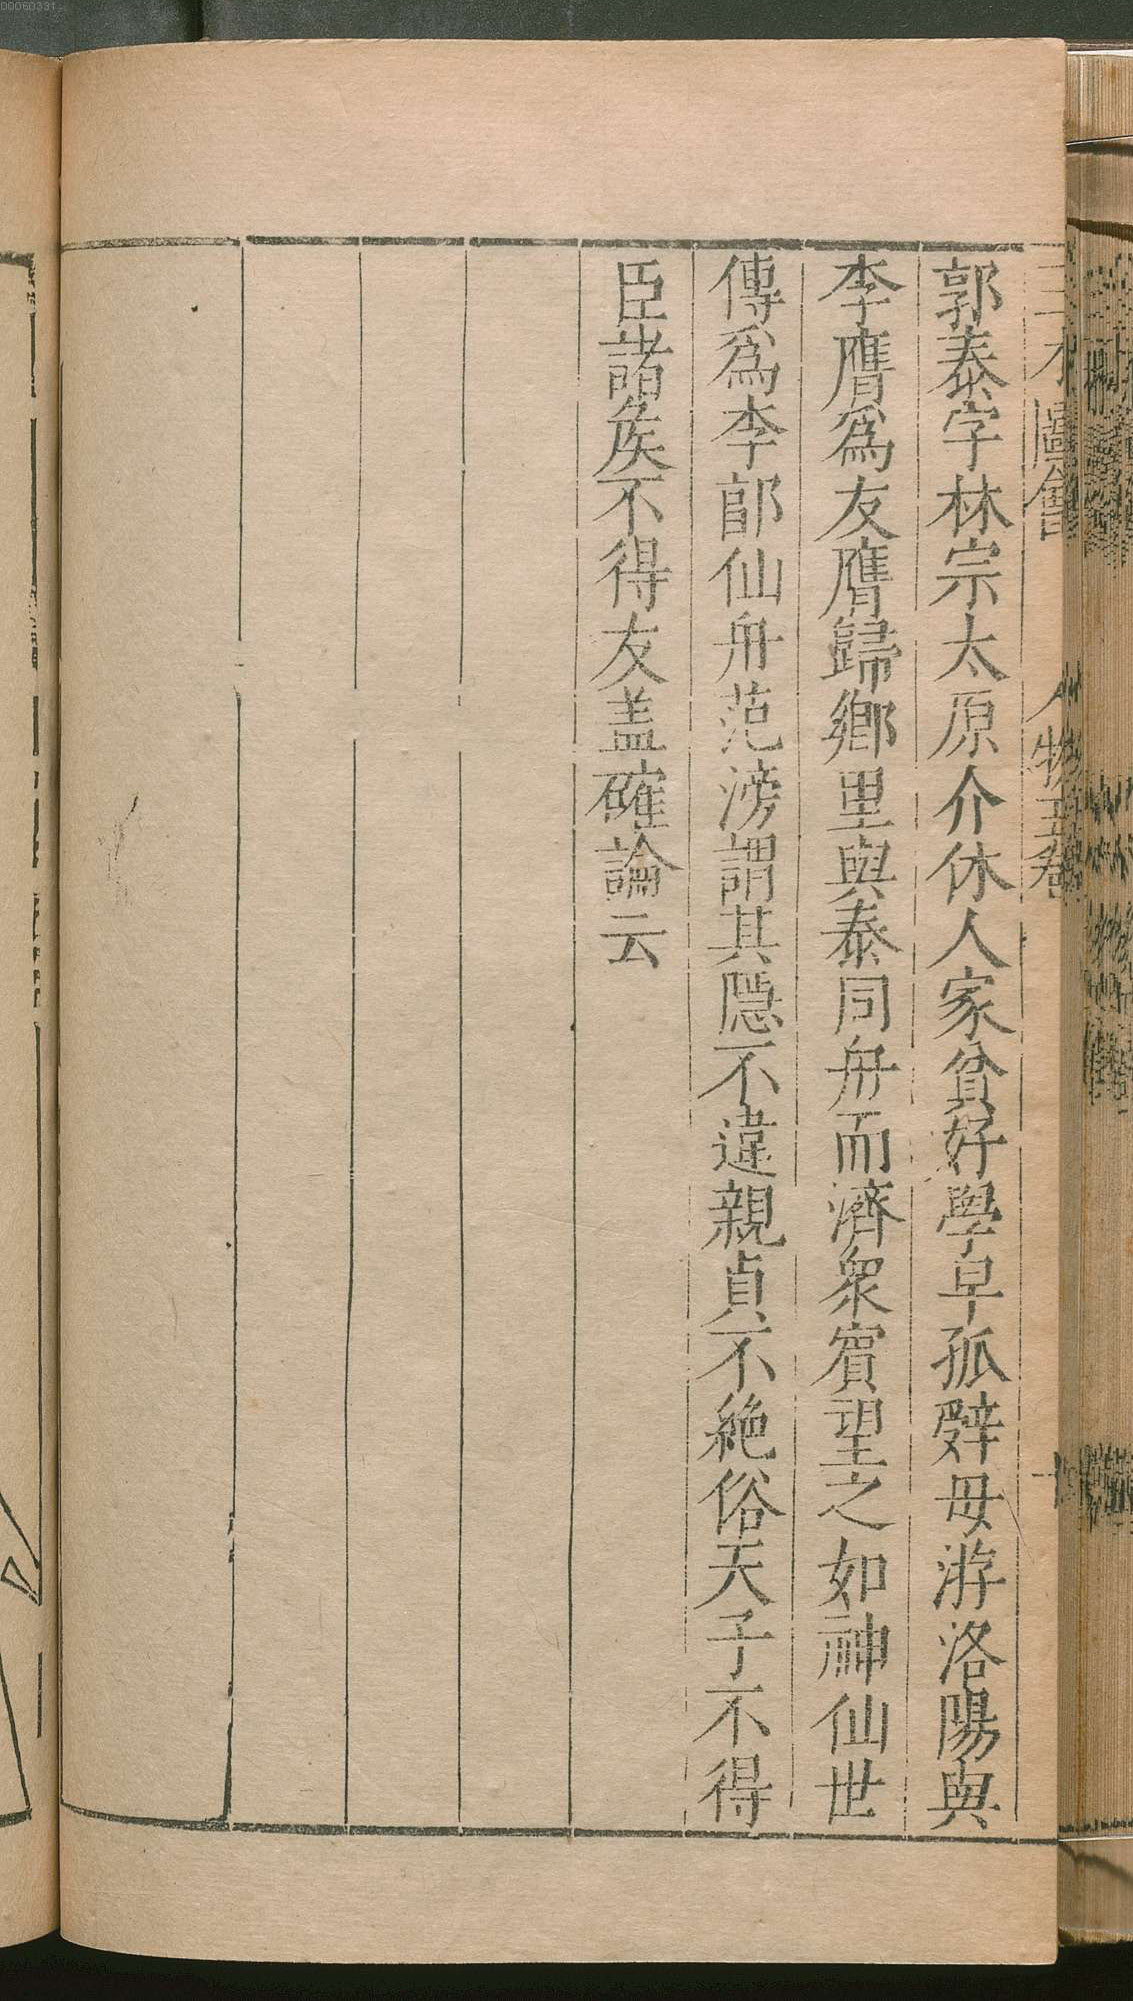 00060331
三才圖會 人物五卷 十
郭泰字林宗太原介休人家貧好學早孤辤母游洛陽與
李膺爲友膺歸鄉里與泰同舟而濟衆賓望之如神仙世
傳爲李郭仙舟范滂謂其隱不違親貞不絶俗天子不得
臣諸侯不得友盖確論云